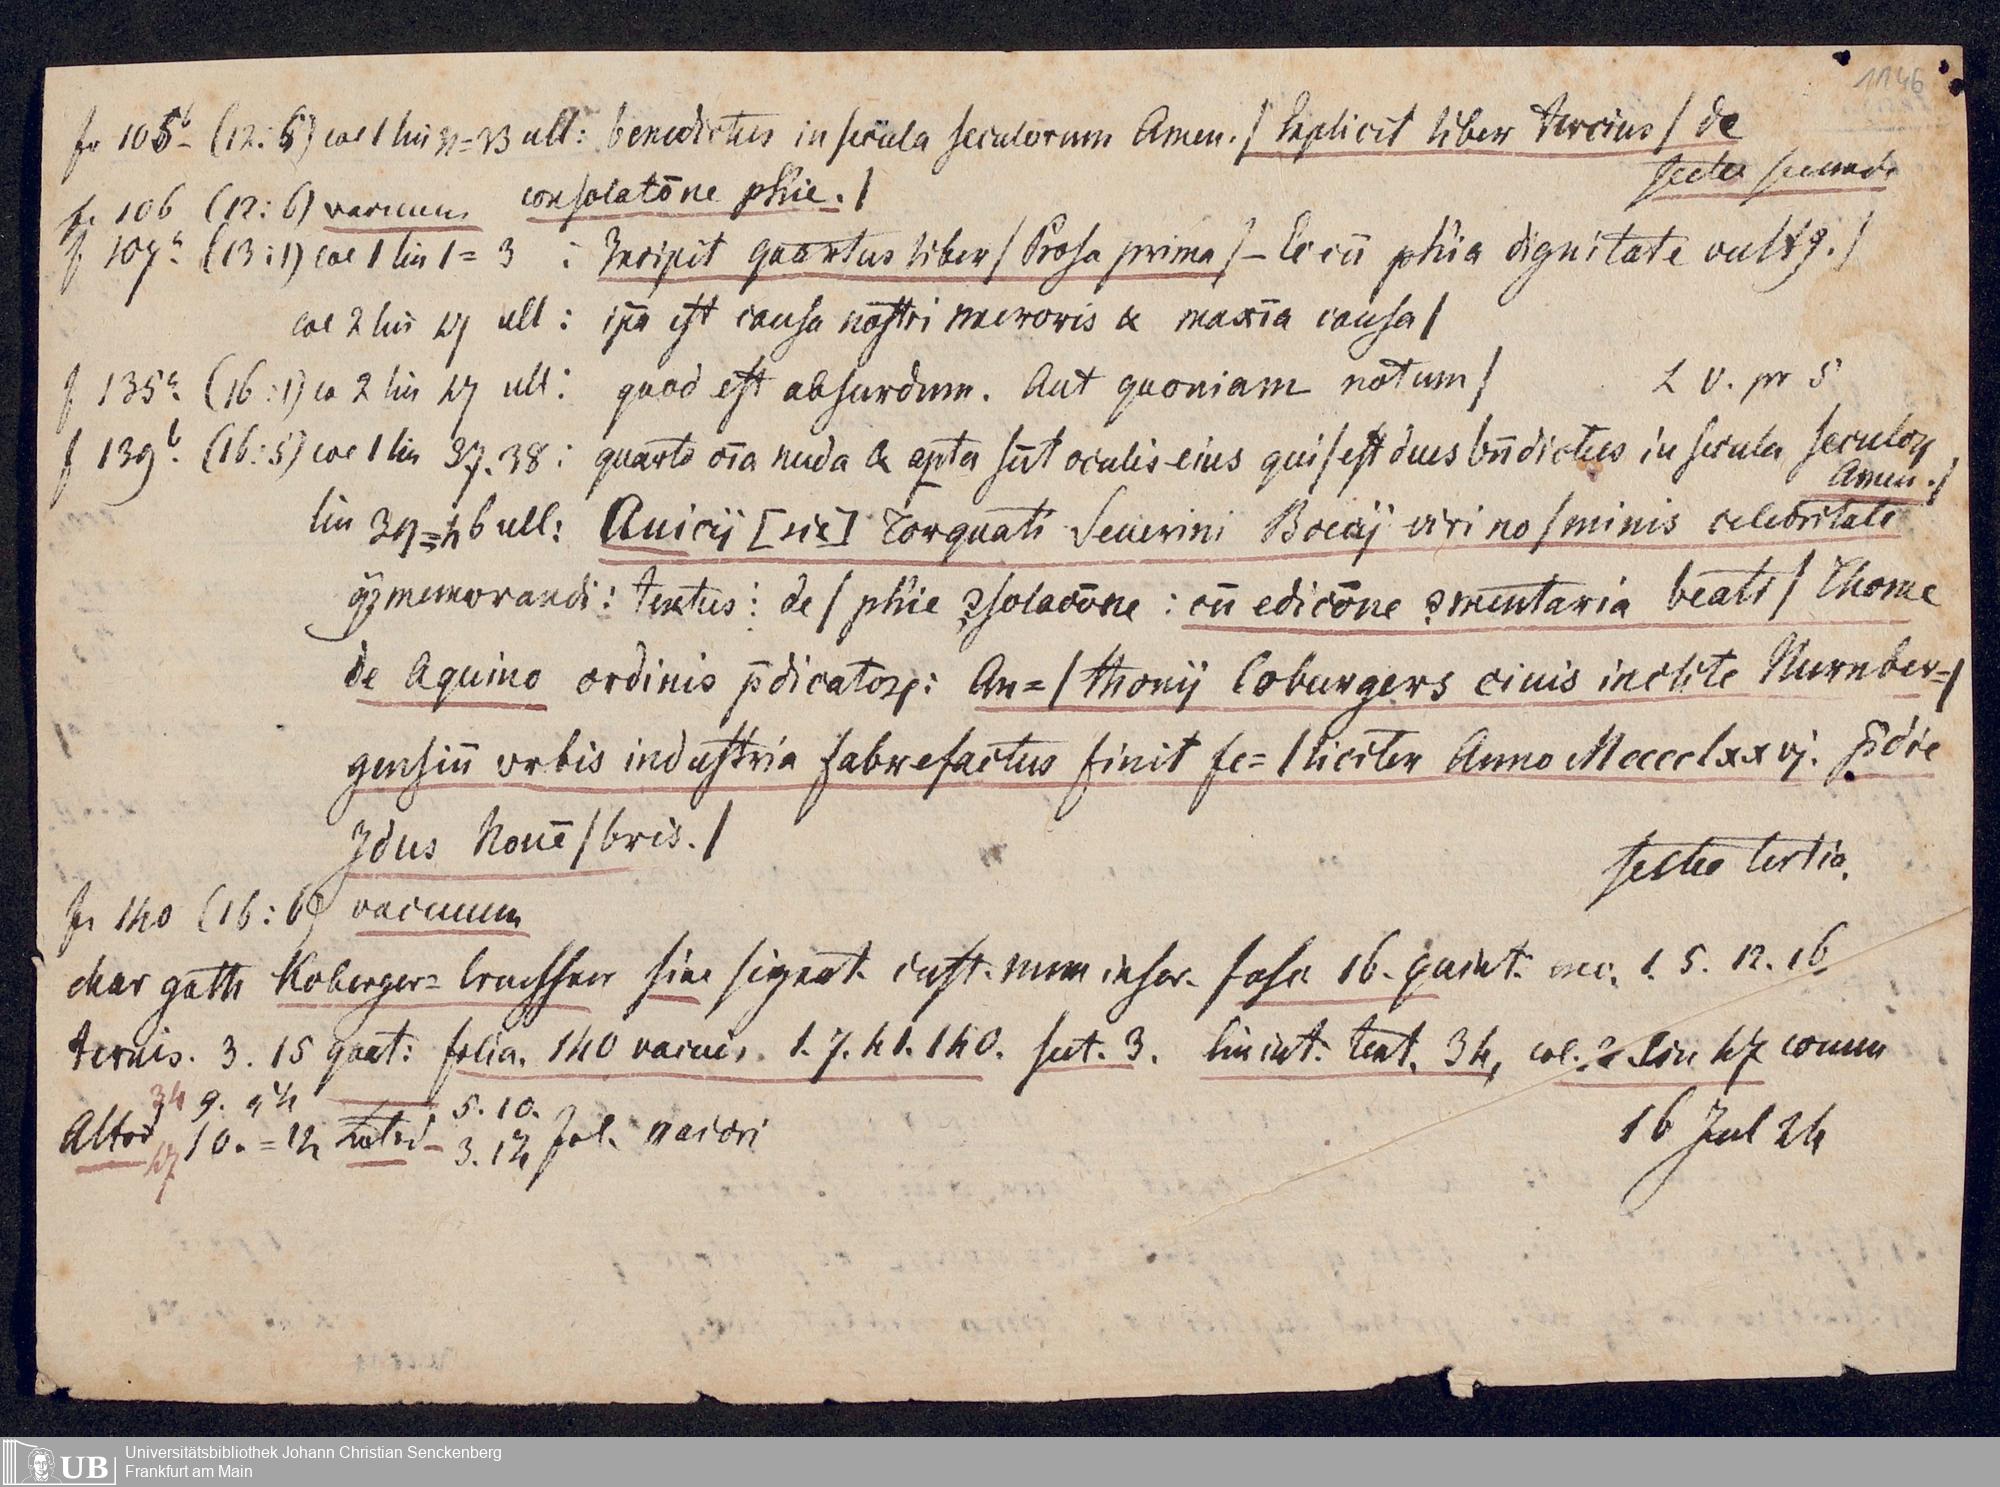 1146
fr 105b (12:5) col 1 lin 21=23 ult: benedictus in secula seculorum Amen./ Explicit liber tercius / de
consolatōne phie./ sectio secunda
fr 106 (12:6) vacuum
f. 107a (13:1) col 1 lin 1=3 : Incipit quartus liber / Prosa prima / – Ec cū phia dignitate vult9./
col 2 lin 47 ult: ipa est causa nostri meroris & maxīa causa /
f 135a (16:1) co 2 lin 47 ult: quod est absurdum. Aut quoniam notum / L V. pr 5
f 139b. (16:5) col 1 lin 37.38: quarto oīa nuda & apta sūt oculis eius qui / est dues bn̄dictus in secula seculoꝝ
Amen./
lin 39=46 ult: Anicij [sic] Torquati Seuerini Boecij viri no / minis celebritate
qꝫ memorandi: textus: de / phie ꝯsolacōne : cū edicōne ꝯmentaria beati / Thome
de Aquino ordinis p̄dicatoꝝ: An= / thonij Coburgers ciuis inclite Nurnber= /
gensiū vrbis industria fabrefactus finit fe= / liciter Anno Mcccclxxvj. p̄die
Idus Nouē / bris./
sectio tertia.
fr 140 (16:6) vacuum
char goth Koberger= Cruessner sine signat. cust. num inscr. fasc 16. quint. 1. 5. 12. 16
ternis. 3. 15 quat: folia. 140 vacuis. 1. 7. 41. 140. sect. 3. lin int. text. 34, col. 2. lin 47 comm
Altod 34 9. 94 47 10.=12 Latid– 5. 10. 3. 14 fol. maiori
16 Jul 24
UB Universitätsbibliothek Johann Christian Senckenberg
Frankfurt am Main